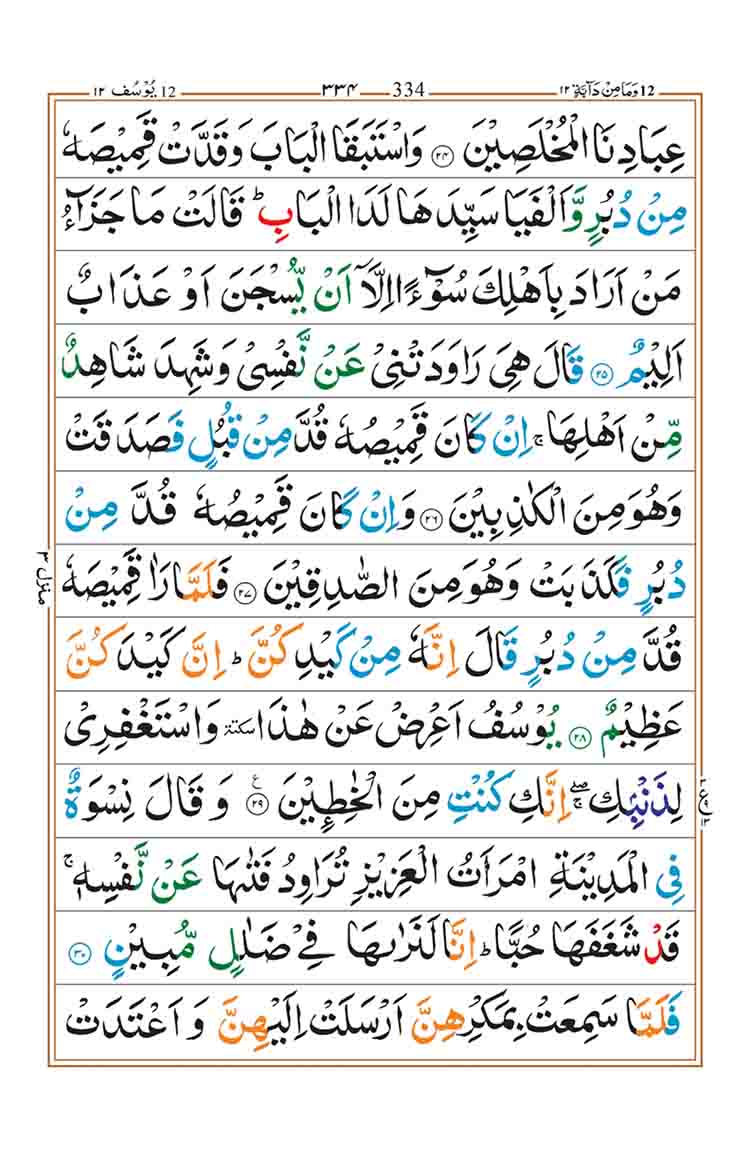 12 وَمَا مِنْ دَآبَّةٍ ۱۲ 334 ۳۳۴ 12 يُوْسُف ۱۲
عِبَادِنَا الْمُخْلَصِيْنَ ۲۴ وَاسْتَبَقَا الْبَابَ وَقَدَّتْ قَمِيْصَهٗ
مِنْ دُبُرٍ وَّاَلْفَيَا سَيِّدَهَا لَدَا الْبَابِ ؕ قَالَتْ مَا جَزَآءُ
مَنْ اَرَادَ بِاَهْلِكَ سُوْٓءًا اِلَّاۤ اَنْ يُّسْجَنَ اَوْ عَذَابٌ
اَلِيْمٌ ۲۵ قَالَ هِيَ رَاوَدَتْنِيْ عَنْ نَّفْسِيْ وَشَهِدَ شَاهِدٌ
مِّنْ اَهْلِهَا ۚ اِنْ كَانَ قَمِيْصُهٗ قُدَّ مِنْ قُبُلٍ فَصَدَقَتْ
وَهُوَ مِنَ الْكٰذِبِيْنَ ۲۶ وَاِنْ كَانَ قَمِيْصُهٗ قُدَّ مِنْ
دُبُرٍ فَكَذَبَتْ وَهُوَ مِنَ الصّٰدِقِيْنَ ۲۷ فَلَمَّا رَاٰ قَمِيْصَهٗ
قُدَّ مِنْ دُبُرٍ قَالَ اِنَّهٗ مِنْ كَيْدِكُنَّ ؕ اِنَّ كَيْدَكُنَّ
عَظِيْمٌ ۲۸ يُوْسُفُ اَعْرِضْ عَنْ هٰذَا سكتة وَاسْتَغْفِرِيْ
لِذَنْۢبِكِ ۖۚ اِنَّكِ كُنْتِ مِنَ الْخٰطِـِٕيْنَ ۲۹ ع وَقَالَ نِسْوَةٌ
فِي الْمَدِيْنَةِ امْرَاَتُ الْعَزِيْزِ تُرَاوِدُ فَتٰىهَا عَنْ نَّفْسِهٖ ۚ
قَدْ شَغَفَهَا حُبًّا ؕ اِنَّا لَنَرٰىهَا فِيْ ضَلٰلٍ مُّبِيْنٍ ۳۰
فَلَمَّا سَمِعَتْ بِمَكْرِهِنَّ اَرْسَلَتْ اِلَيْهِنَّ وَاَعْتَدَتْ
منزل ۳